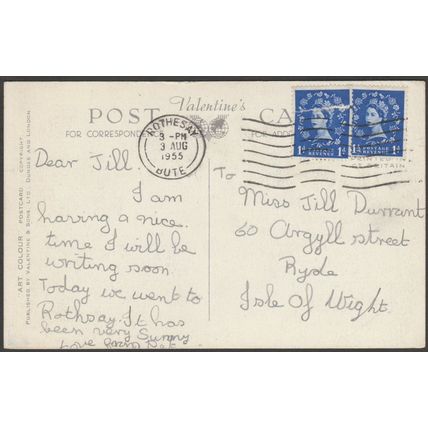 POST Valentine's CA
FOR CORRESPONDENCE FOR ADD
ROTHESAY
3 - PM
3 AUG
1955
BUTE
1d 1d 1d 1d
POSTAGE REVENUE
PRINTED IN
BRITAIN
"ART COLOUR" POSTCARD. COPYRIGHT
PUBLISHED BY VALENTINE & SONS LTD., DUNDEE AND LONDON
Dear Jill.
I am
having a nice
time I will be
writing soon
Today we went to
Rothsay. It has
been very Sunny
Love from
To
Miss Jill Durrant
60 Argyll street
Ryde
Isle of Wight.